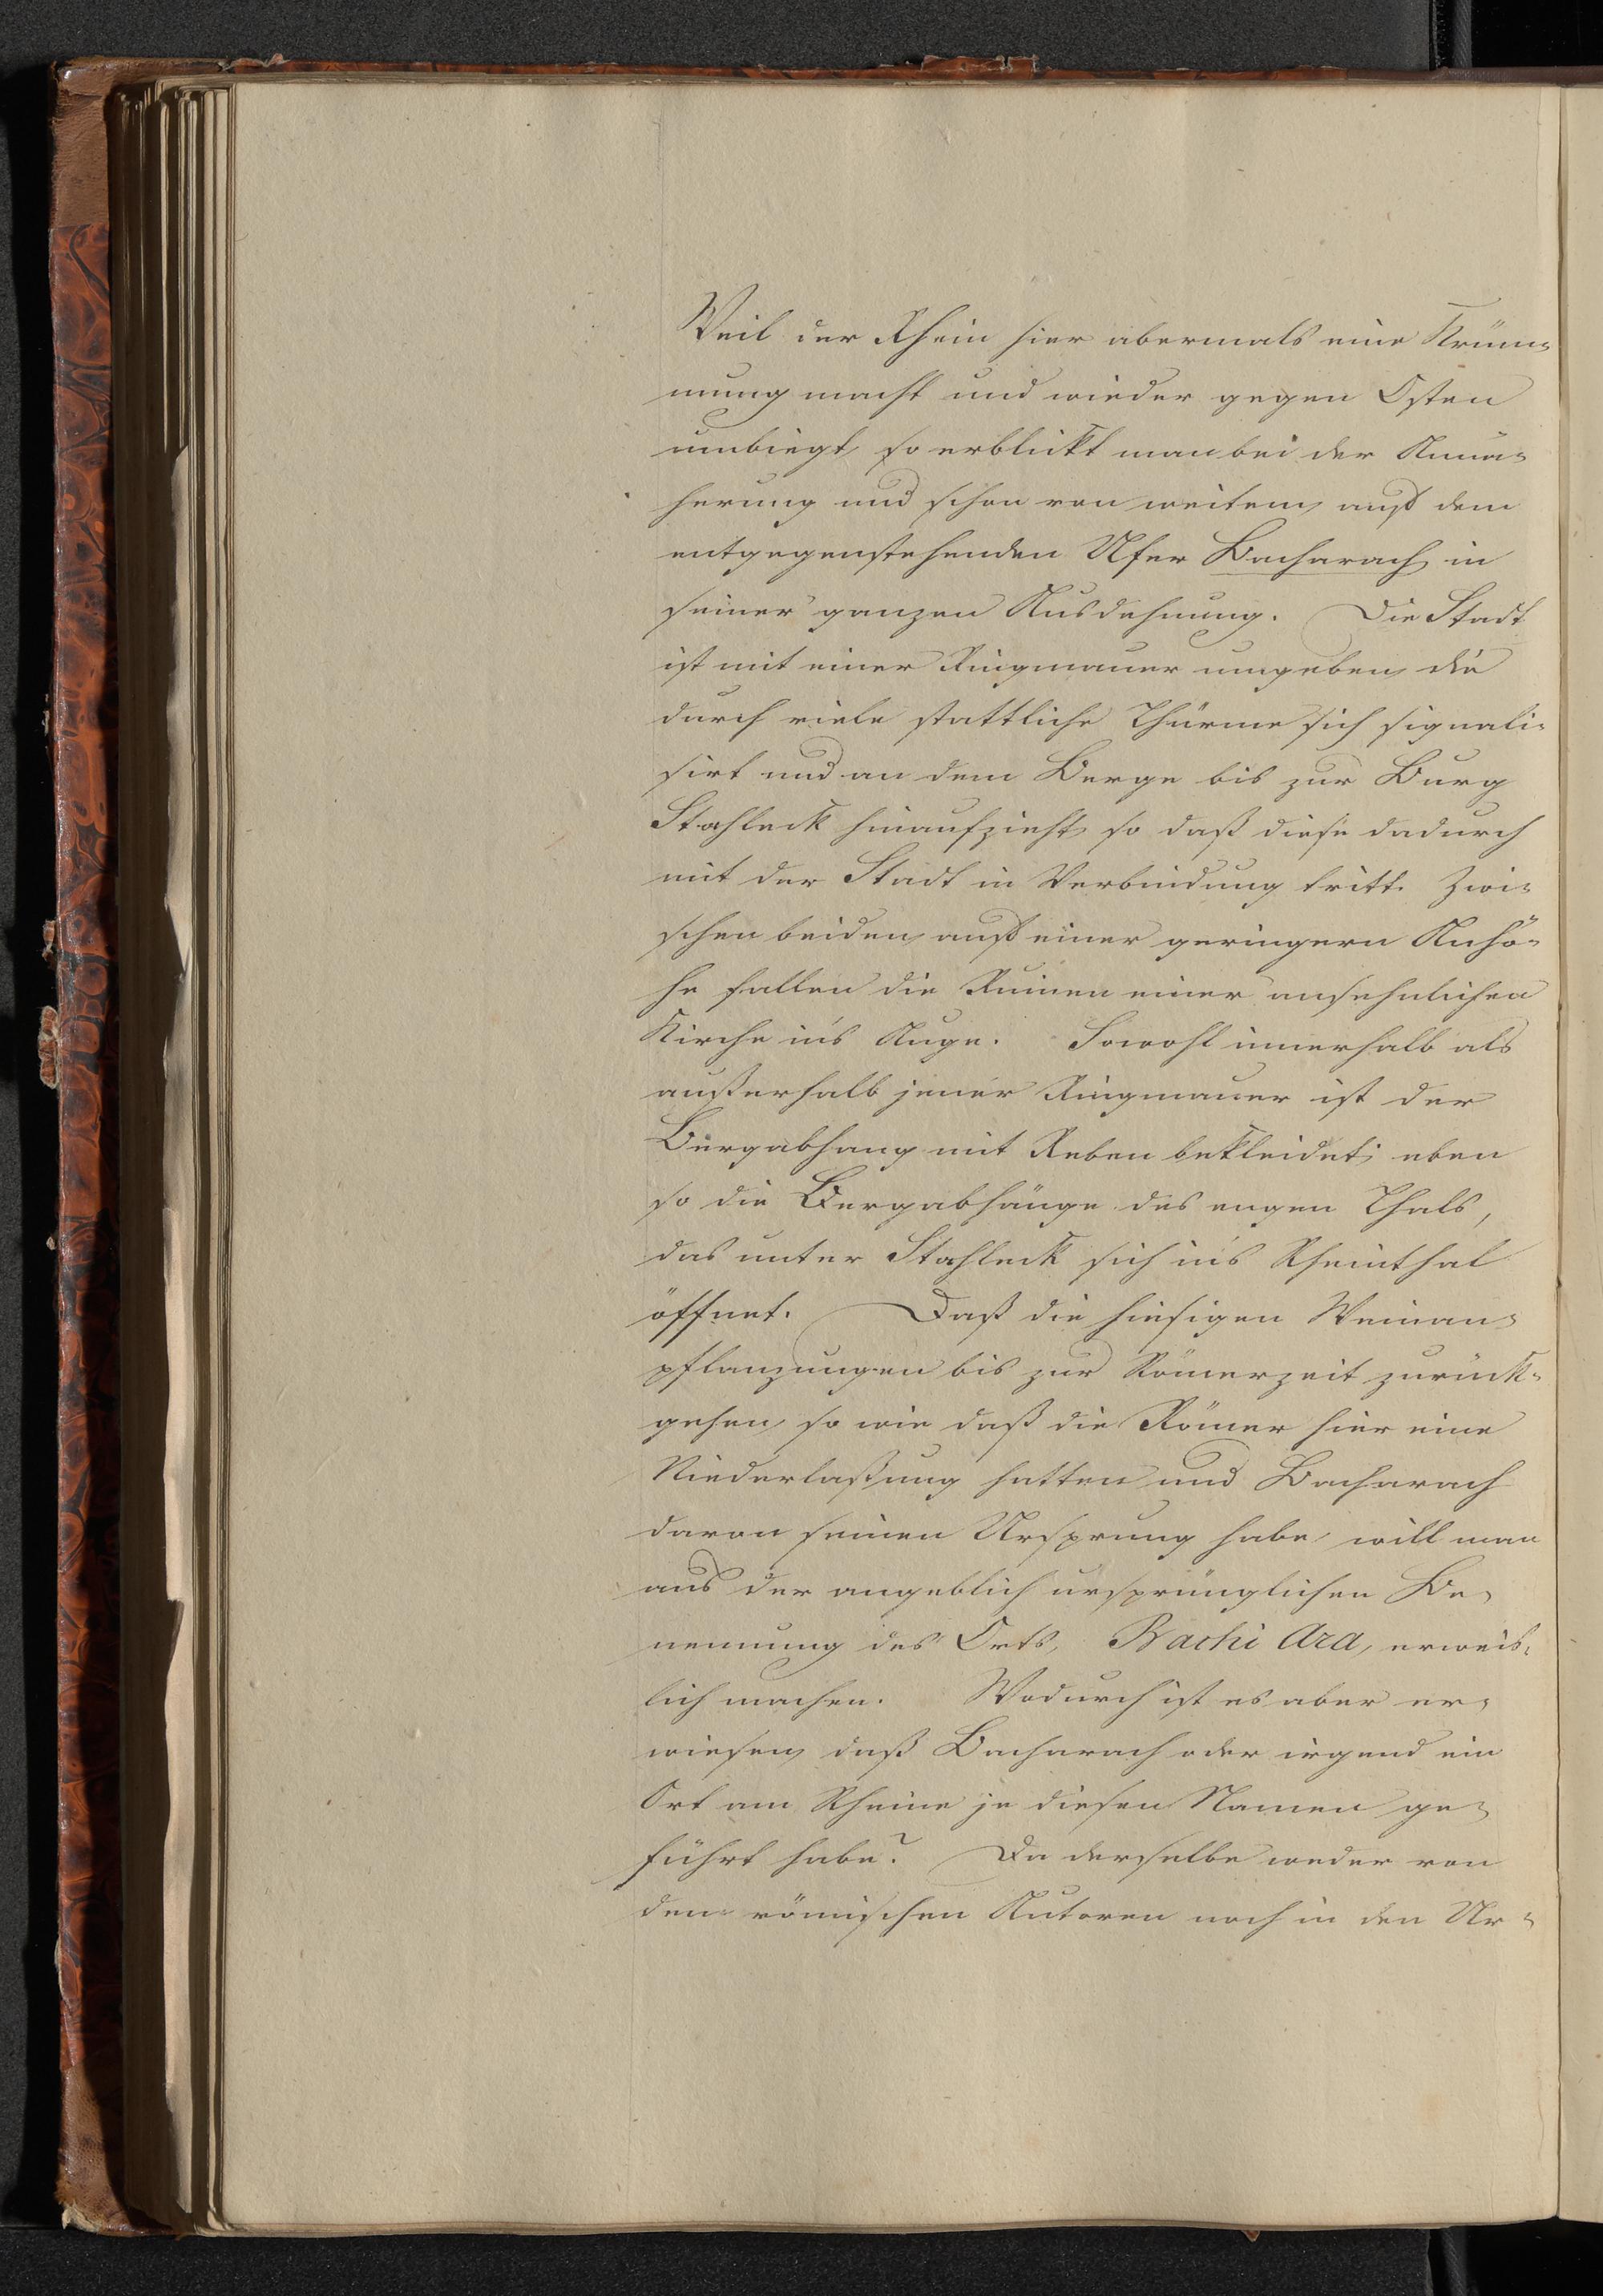 Weil der Rhein hier abermals eine Krüm-
mung macht und wieder gegen Osten
umbiegt, so erblickt man bei der Annä-
herung und schon von weitem, auß dem
entgegenstehenden Ufer Bacharach in
seiner ganzen Ausdehnung. Die Stadt
ist mit einer Ringmauer umgeben, die
durch viele stattliche Thürme sich signali-
sirt und an dem Berge bis zur Burg
Stahleck hinaufzieht, so daß diese dadurch
mit der Stadt in Verbindung tritt. Zwi-
schen beiden, auß einer geringern Anhö-
he fallen die Ruinen einer ansehnlichen
Kirche in's Auge. Sowohl innerhalb als
außerhalb jener Ringmauer ist der
Bergabhang mit Reben bekleidet; eben
so die Bergabhänge des engen Thals,
das unter Stahleck sich in's Rheinthal
öffnet. Daß die hiesigen Weinan-
pflanzungen bis zur Römerzeit zurück-
gehen, so wie daß die Römer hier eine
Niederlaßung hatten und Bacharach
davon seinen Ursprung habe, will man
aus der angeblich ursprünglichen Be-
nennung des Orts, Bachi Ara, erweis-
lich machen. Wodurch ist es aber er-
wiesen, daß Bacharach oder irgend ein
Ort am Rheine je diesen Namen ge-
führt habe? Da derselbe weder von
den römischen Autoren noch in den Ur-